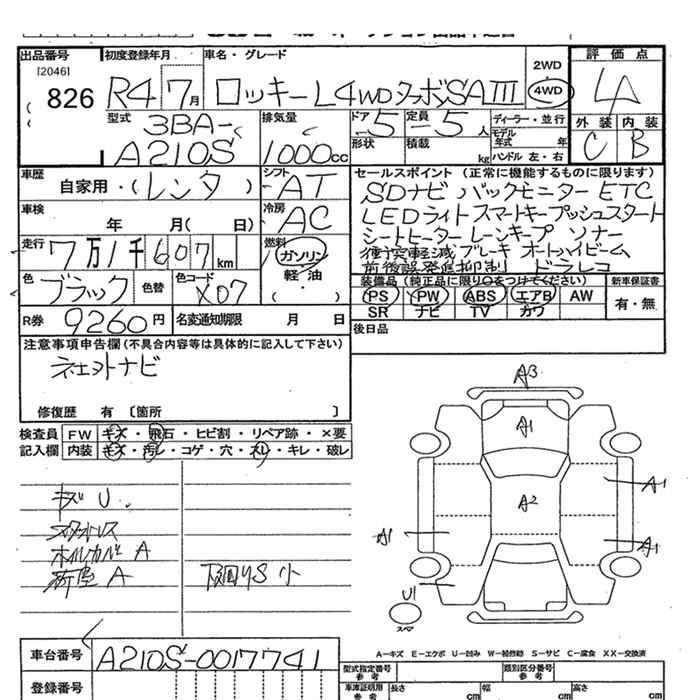 出品番号 初度登録年月 車名・グレード 2WD 評価点
[2046] 826 R4 7月 ロッキー L 4WD ターボ SA III 4WD 4A
型式 排気量 ドア 定員 ディーラー・並行 外装 内装
3BA- 5 5人 モデル年式 年 C B
A210S 1000cc 形状 積載 kg ハンドル 左・右
車歴 シフト セールスポイント (正常に機能するものに限ります)
自家用・(レンタ) AT SDナビ バックモニター ETC
車検 冷房 LEDライト スマートキー プッシュスタート
年 月( 日) AC シートヒーター レーンキープ ソナー
走行 燃料 衝突軽減ブレーキ オートハイビーム
7万1千607km ガソリン 前後誤発進抑制 ドラレコ
色 色替 色コード 軽・油 装備品(純正品に限り○をつけてください) 新車保証書
ブラック X07 ( ) PS PW ABS エアB AW 有・無
SR ナビ TV カワ
R券 9260円 名変通知期限 月 日 後日品
注意事項申告欄(不具合内容等は具体的に記入して下さい)
修復歴 有 〔箇所 〕
検査員 FW キズ・飛石・ヒビ割・リペア跡・×要
記入欄 内装 キズ・汚レ・コゲ・穴・スレ・キレ・破レ
A3
A1
A2
A1
A1
A1
U1
スペア
キズ U
ホイルカバー A
A
下廻りS 小
車台番号 A210S-0017741
登録番号
A-キズ E-エクボ U-凹み W-補修跡 S-サビ C-腐食 XX-交換済
型式指定番号 参考 類別区分番号 参考
車庫証明用 参考 長さ cm 幅 cm 高さ cm